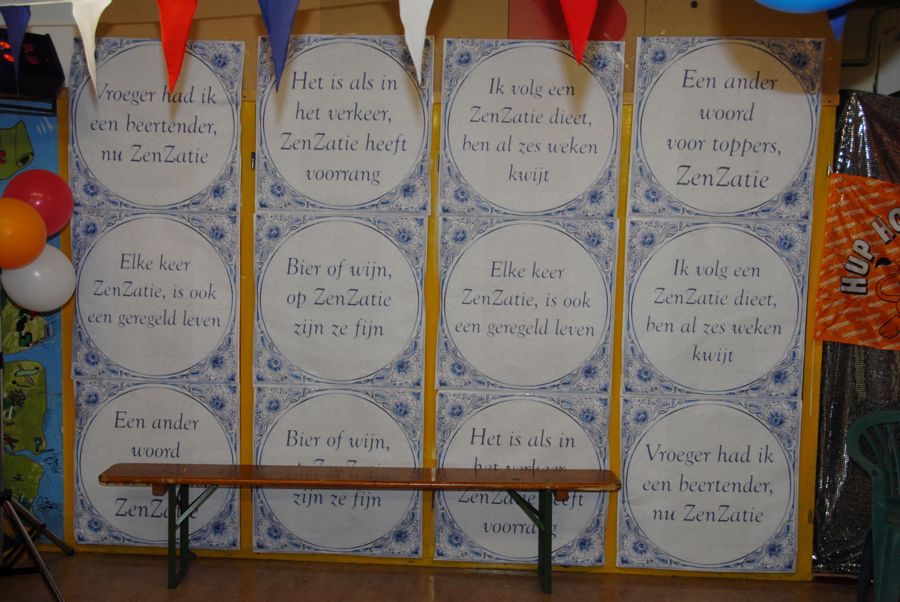 Vroeger had ik
een beertender,
nu ZenZatie
Het is als in
het verkeer,
ZenZatie heeft
voorrang
Ik volg een
ZenZatie dieet,
ben al zes weken
kwijt
Een ander
woord
voor toppers,
ZenZatie
Elke keer
ZenZatie, is ook
een geregeld leven
Bier of wijn,
op ZenZatie
zijn ze fijn
Elke keer
ZenZatie, is ook
een geregeld leven
Ik volg een
ZenZatie dieet,
ben al zes weken
kwijt
Een ander
woord
Bier of wijn,
zijn ze fijn
Het is als in
het verkeer
ZenZatie heeft
voorrang
Vroeger had ik
een beertender,
nu ZenZatie
HUP